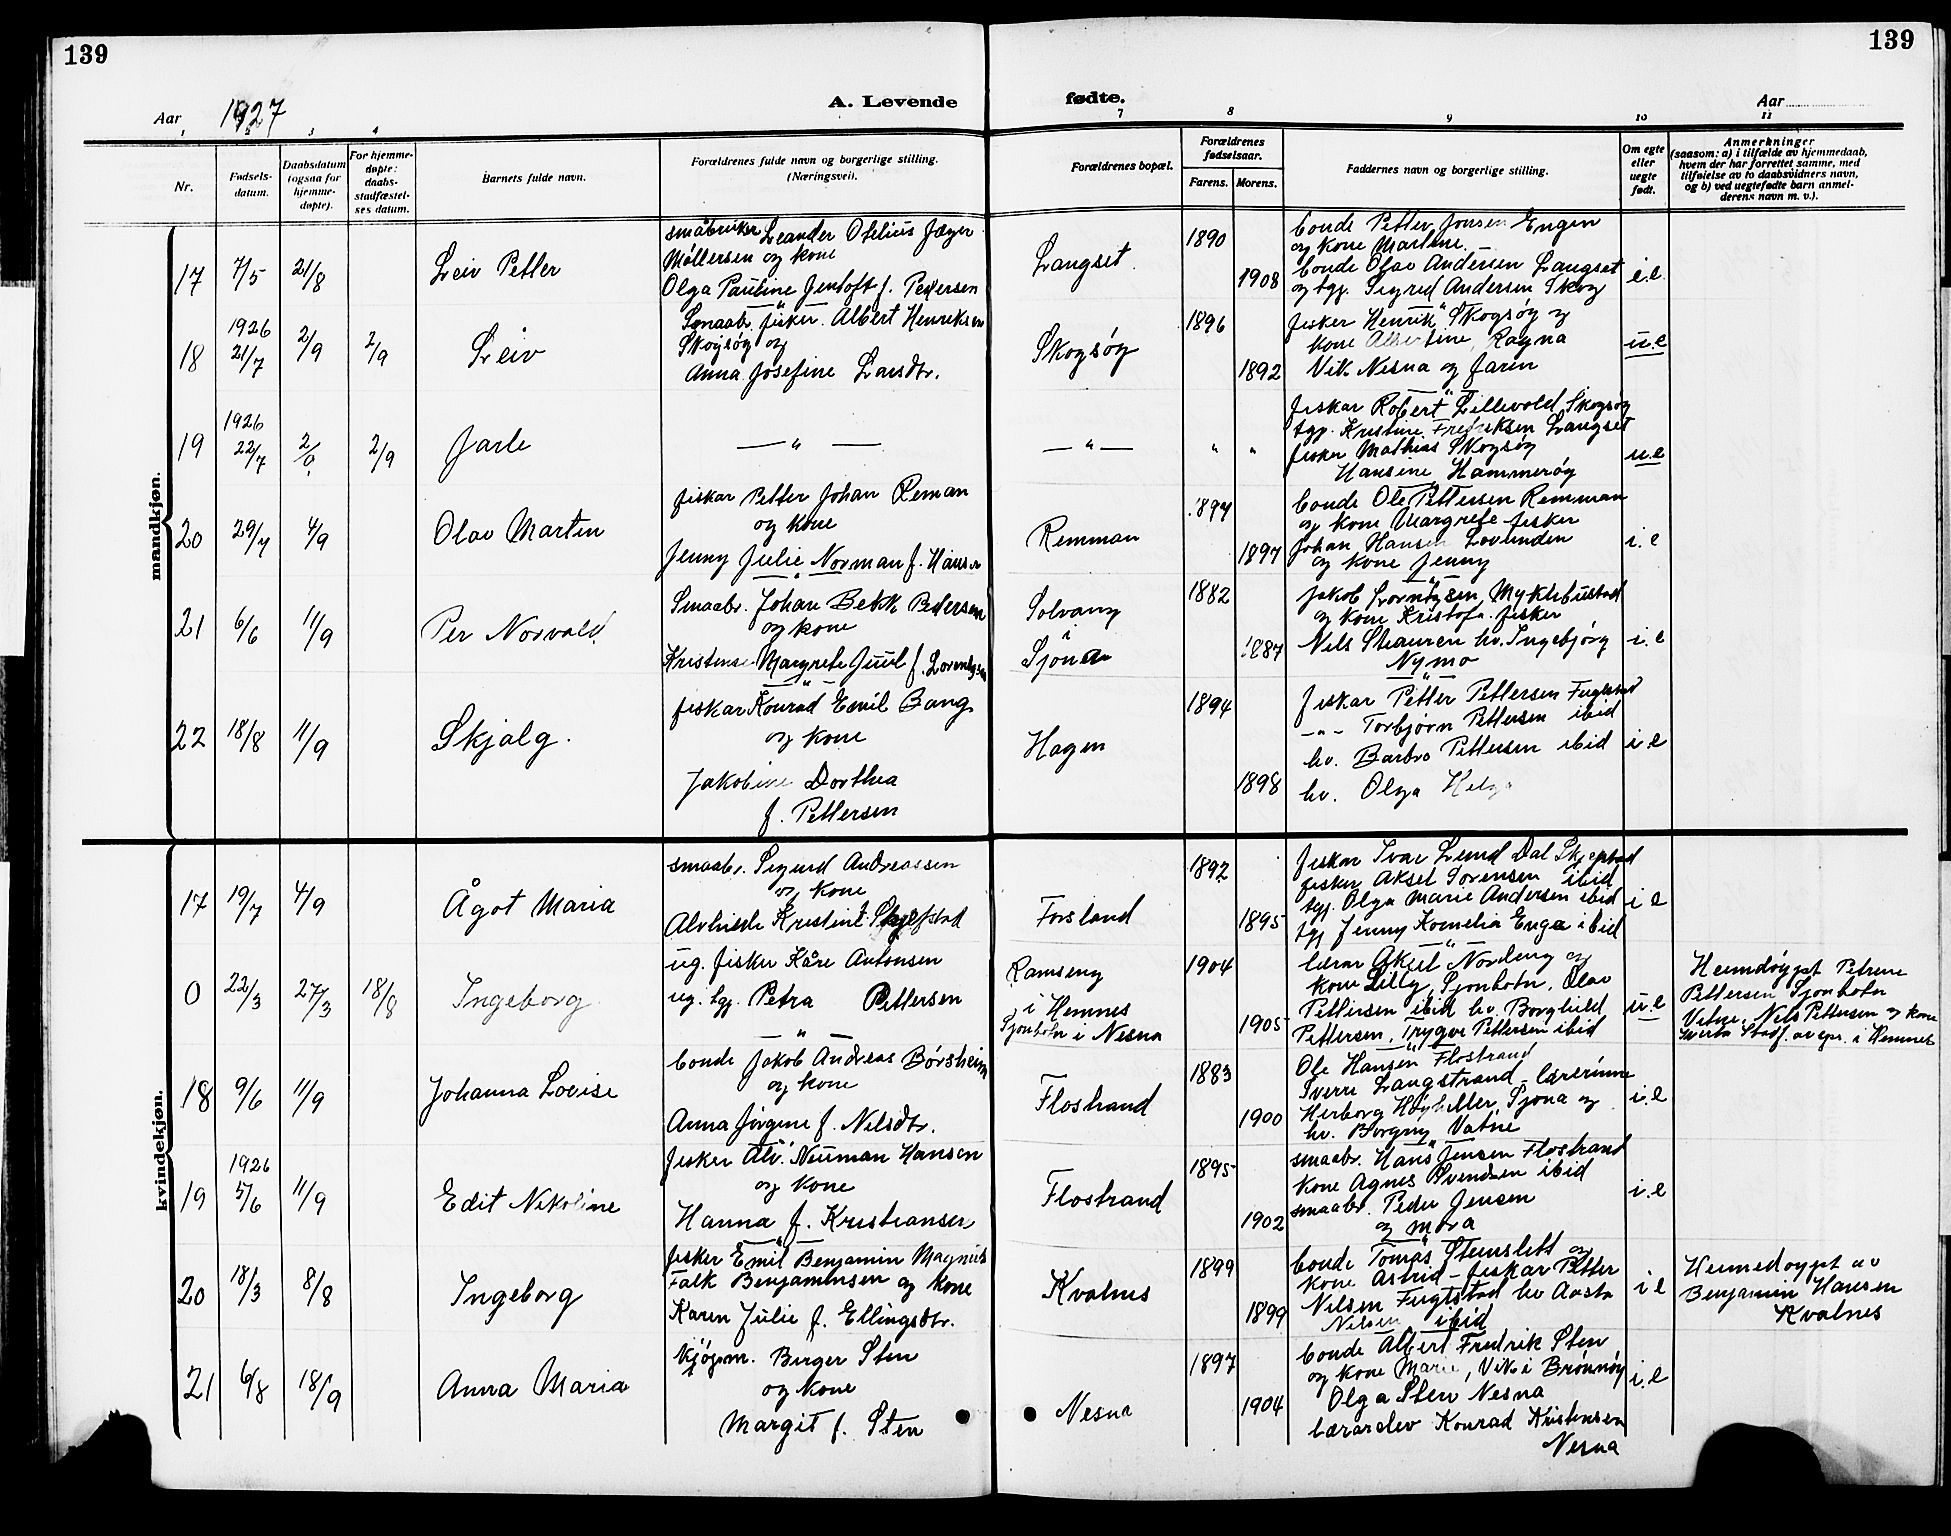 139
139
Aar 1927
A. Levende fødte.
Aar
1 2 3 4 7 8 9 10 11
Nr.
Fødsels-
datum.
Daabsdatum
(ogsaa for
hjemme-
døpte).
For hjemme-
døpte:
daabs-
stadfæstel-
ses datum.
Barnets fulde navn.
Forældrenes fulde navn og borgerlige stilling.
(Næringsvei).
Forældrenes bopæl.
Forældrenes
fødselsaar.
Farens. Morens.
Faddernes navn og borgerlige stilling.
Om egte
eller
uegte
født.
Anmerkninger
(saasom: a) i tilfælde av hjemmedaab,
hvem der har forrettet samme, med
tilføielse av to daabsvidners navn,
og b) ved uegtefødte barn anmel-
derens navn m. v.).
mandkjøn.
17 7/5 21/8 Leiv Petter
småbruker Leander Ofelius Jæger
Møllersen og kone
Olga Pauline Jentoft f. Pedersen
Langset
1890
1908
bonde Petter Jonsen Engen
og kone Martine.
bonde Olav Andersen Langset
og tgp. Sigred Andersen Skog
i.e.
18 1926 21/7 2/9 2/9 Leiv
Smaabr. fisker. Albert Henriksen
Skogsøy og
Anna Josefine Larsdtr.
Skogsøy
1896
1892
fisker Henrik Skogsøy og
kone Albertine, Ragna
Vik Nesna og faren
u.e
19 1926 22/7 2/9 2/9 Jarle
— " —
— " —
" "
fiskar Robert Lillevold Skogsøy
tgp. Kristine Fredriksen Langset
fisker Mathias Skogsøy
Hansine Hammerøy
u.e
20 29/7 4/9 Olav Martin
fiskar Petter Johan Reman
og kone
Jenny Julie Norman f. Hansen
Remman
1894
1897
bonde Ole Pettersen Remman
og kone Margrete fisker
Johan Hansen Lovunden
og kone Jenny
i.e
21 6/6 11/9 Per Norvald
Smaabr. Johan Pedersen
og kone
Kristense Margrete Juul f. Lorentsen
Solvang
Sjona
1882
1887
Jakob Lorentsen, Myklebustad
og kone Kristofa. fisker
Nils Stauren hv. Ingebjørg
Nymo
i.e
22 18/8 11/9 Skjalg.
fiskar Konrad Emil Bang
og kone
Jakobine Dorthea
f. Pettersen
Hagen
1894
1898
fiskar Petter Pettersen Fuglstad
— " — Torbjørn Pettersen ibid
hv. Barbro Pettersen ibid
hv. Olga
i.e
kvindekjøn.
17 19/7 4/9 Ågot Maria
smaabr. Sigurd Andreassen
og kone
Alvhilde Kristine
Forsland
1892
1895
fiskar Ivar Lund Dal
fisker Aksel Sørensen ibid
tgp. Olga Marie Andersen ibid
tgp Jenny Kornelia Enge ibid
i e
0 22/3 27/3 18/8 Ingeborg
ug. fisker Kåre Antonsen
ug. tgp. Petra Pettersen
Ramseng
i Hemnes
Sjonbotn i Nesna
1904
1905
lærar Aksel Nordeng og
kone Lilly, Sjonbotn, Olav
Pettersen ibid hv. Borghild
Pettersen, Trygve Pettersen ibid
u.e
Heimdøypt Petrine
Pettersen Sjonbotn
Vitne. Nils Pettersen og kone
Stadf. av i Hemnes
18 9/6 11/9 Johanna Lovise
bonde Jakob Andreas Børsheim
og kone
Anna Jørgine f. Nilsdtr.
Flostrand
1883
1900
Ole Hansen Flostrand
Sverre Langstrand – lærerinne
Herborg Sjona og
hv. Borgny Vatne
i.e
19 1926 5/6 11/9 Edit Nikoline
fisker Alv. Neuman Hansen
og kone
Hanna f. Kristiansen
Flostrand
1895
1902
smaabr. Hans Jensen Flostrand
kone Agnes Svendsen ibid
smaabr. Peder Jensen
og mora
i.e
20 18/3 8/8 Ingeborg
fisker Emil Benjamin Magnus
Falk Benjaminsen og kone
Karen Julie f. Ellingsdtr.
Kvalnes
1899
1899
bonde Tomas Steinslett og
kone Astrid – fiskar Petter
Nilsen Fuglstad hv Aasta
Nilsen ibid
i e
Heimedøypt av
Benjamin Hansen
Kvalnes
21 6/8 18/9 Anna Maria
kjøpm. Birger Sten
og kone
Margit f. Sten
Nesna
1897
1904
bonde Albert Fredrik Sten
og kone Marie, Vik i Brønnøy
Olga Sten Nesna
lærarelev Konrad Kristensen
Nesna
i.e